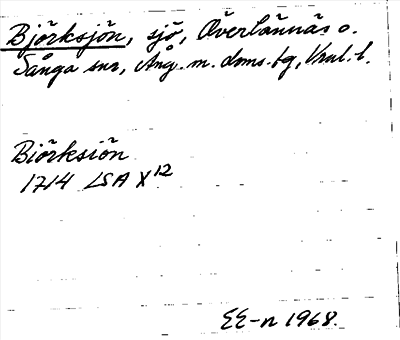 Björksjön, sjö, Överlännäs o.
Sånga snr, Ång. m. doms.bg, Vnl. l.
Biörksiön
1714 LSA X12
EE-n 1968.